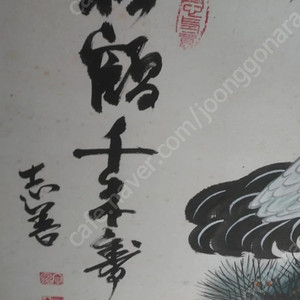 松鶴千年壽
志善
cafe.naver.com/joonggonara